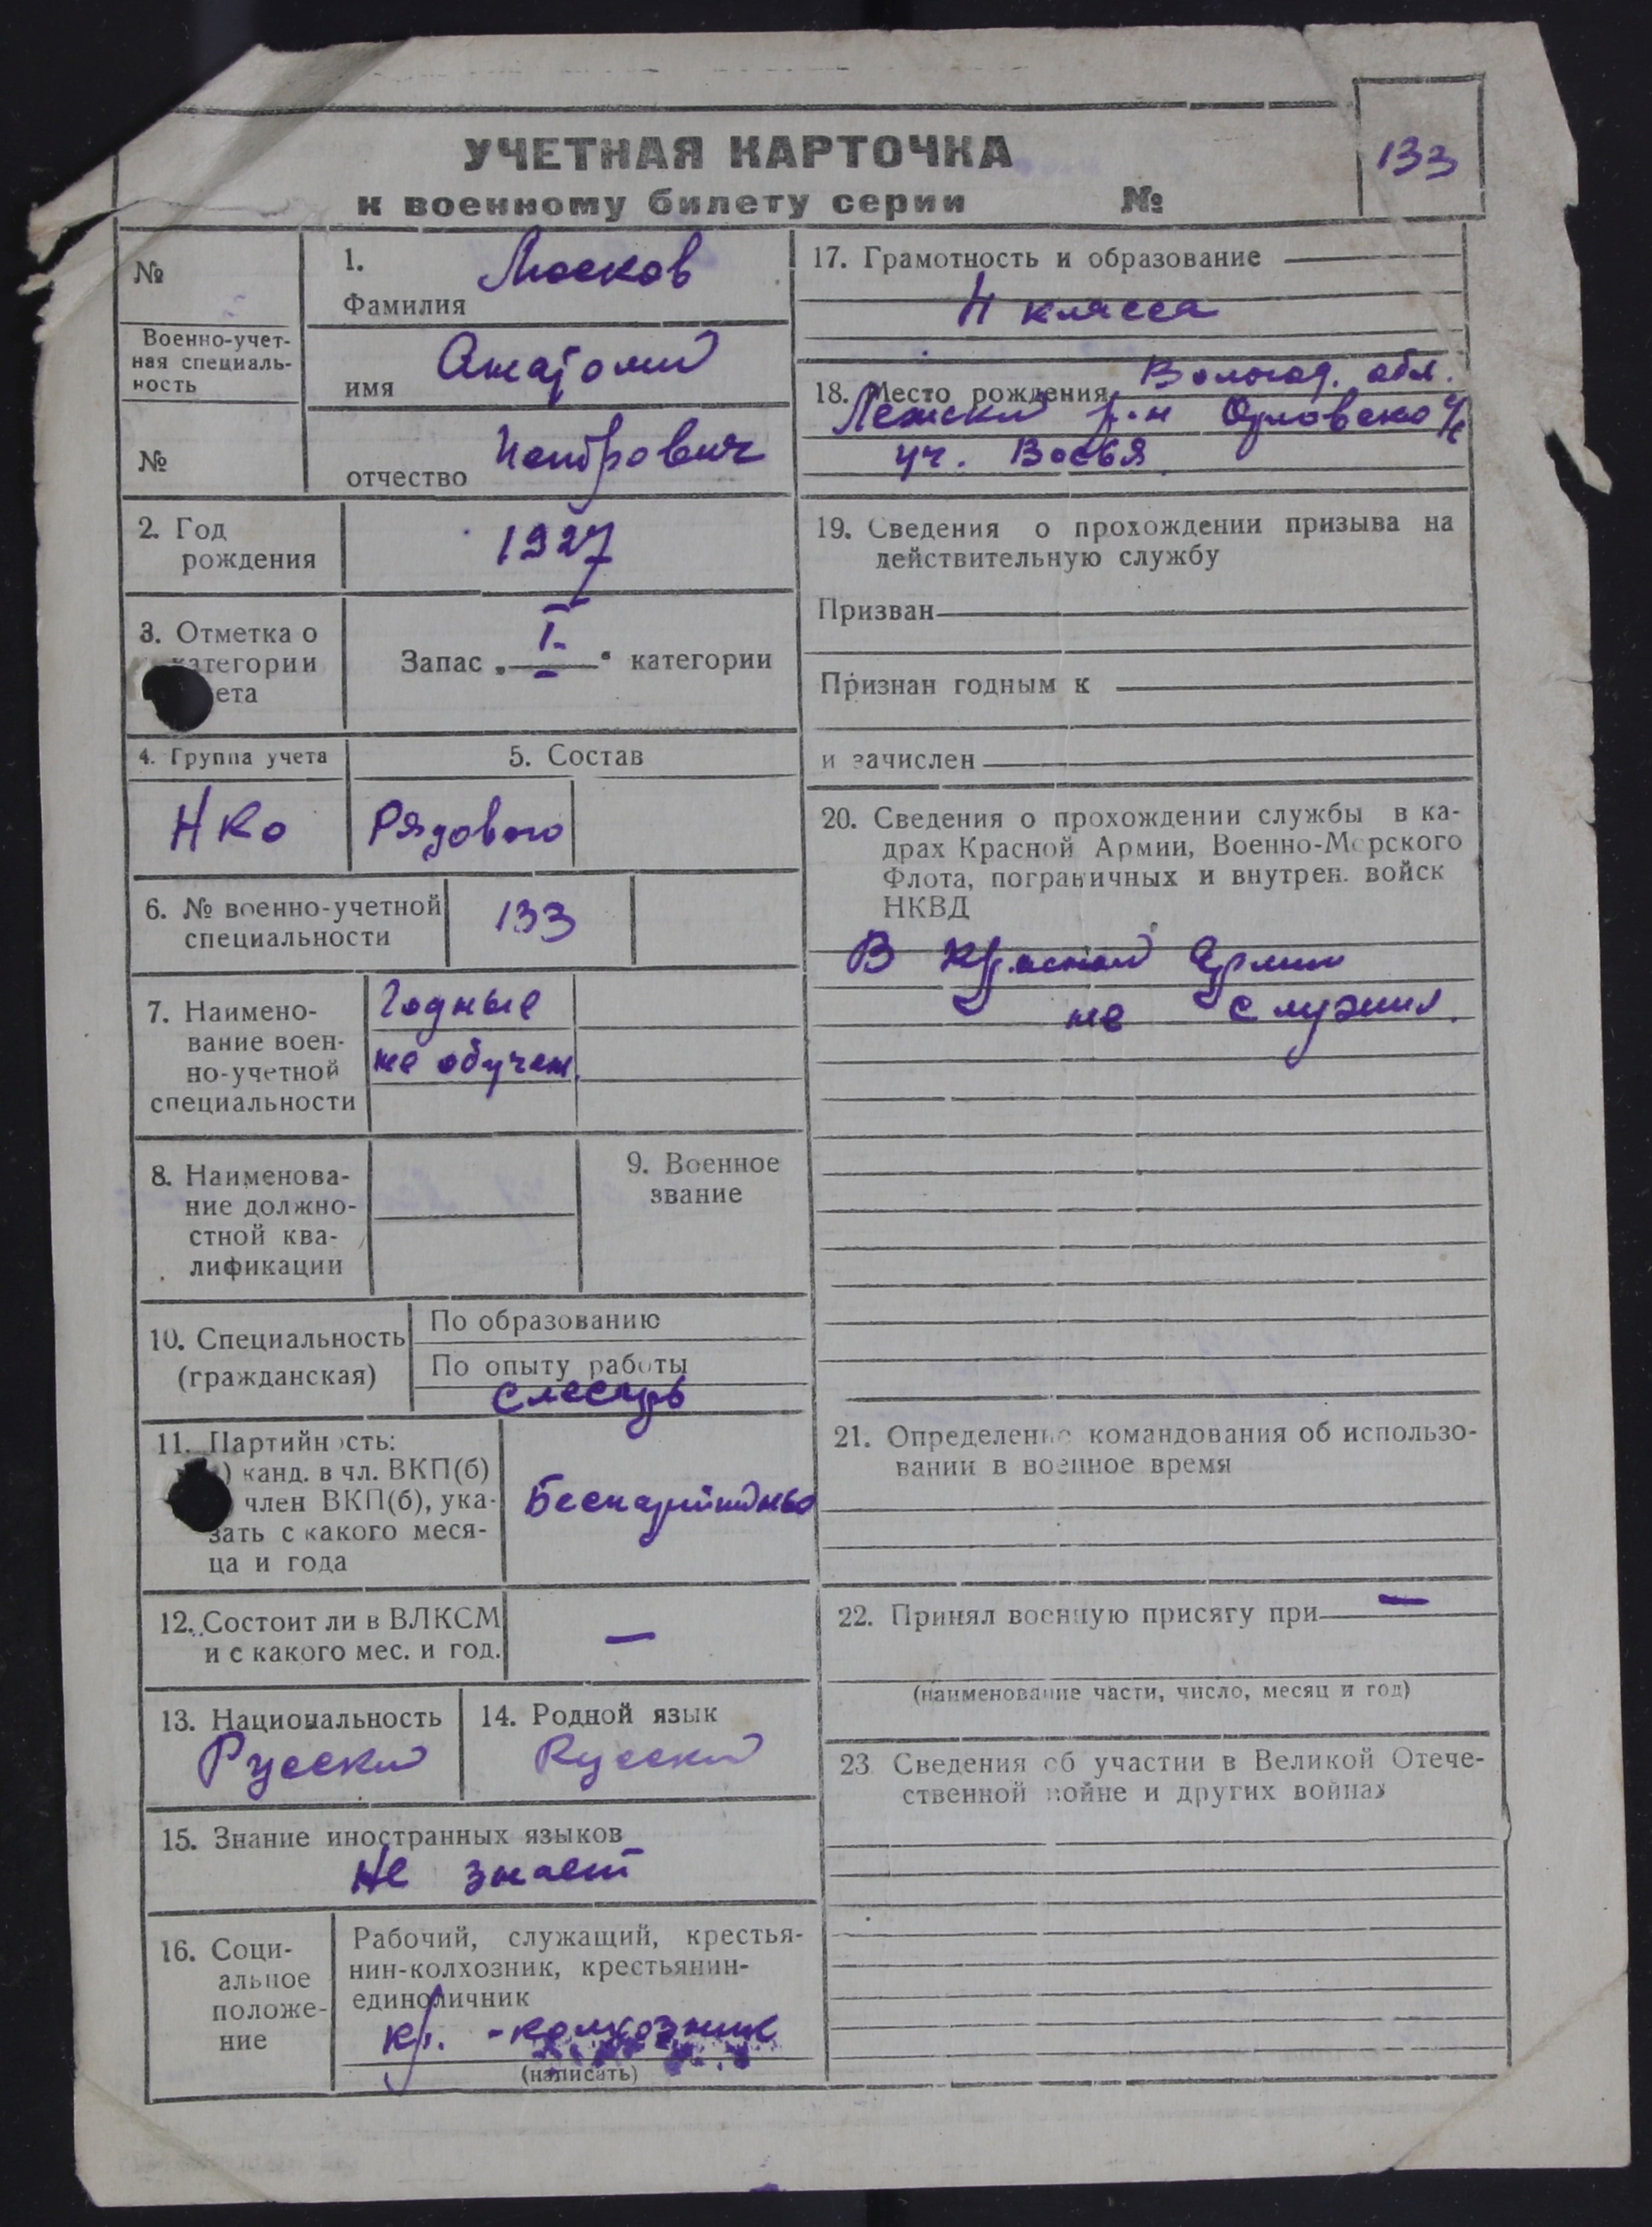 133
УЧЕТНАЯ КАРТОЧКА
к военному билету серии №
№
Военно-учет-
ная специаль-
ность
№
1.
Фамилия Москов
имя Анатолий
отчество Петрович
2. Год
рождения
1927
3. Отметка о
категории
ета
Запас „ I " категории
4. Группа учета
НКО
5. Состав
Рядового
6. № военно-учетной
специальности
133
7. Наимено-
вание воен-
но-учетной
специальности
Годные
не обучен.
8. Наименова-
ние должно-
стной ква-
лификации
9. Военное
звание
10. Специальность
(гражданская)
По образованию
По опыту работы
слесарь
11. Партийность:
) канд. в чл. ВКП(б)
член ВКП(б), ука-
зать с какого меся-
ца и года
12. Состоит ли в ВЛКСМ
и с какого мес. и год.
—
13. Национальность
Русский
14. Родной язык
Русский
15. Знание иностранных языков
Не знает
16. Соци-
альное
положе-
ние
Рабочий, служащий, крестья-
нин-колхозник, крестьянин-
единоличник
кр. -колхозник
(написать)
17. Грамотность и образование
4 класса
18. Место рождения Вологод. обл.
р-н
19. Сведения о прохождении призыва на
действительную службу
Призван
Признан годным к
и зачислен
20. Сведения о прохождении службы в ка-
драх Красной Армии, Военно-Морского
Флота, пограничных и внутрен. войск
НКВД
В Красной Армии
не служил.
21. Определение командования об использо-
вании в военное время
22. Принял военную присягу при —
(наименование части, число, месяц и год)
23 Сведения об участии в Великой Отече-
ственной войне и других войнах